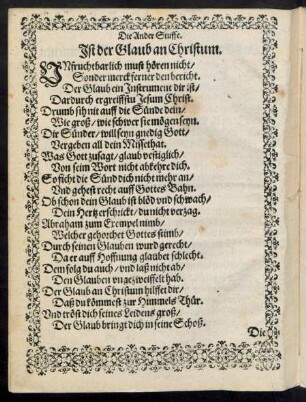 Die Ander Stuffe.
Ist der Glaub an Christum.
INfruchtbarlich must hören nicht/
Sonder merck ferner den bericht.
Der Glaub ein Instrument dir ist/
Dardurch ergreiffstu Jesum Christ.
Drumb sih nit auff die Sünde dein/
Wie groß/ wie schwer sie mögen seyn.
Dir Sünder/ will seyn gnedig Gott/
Vergeben all dein Missethat.
Was Gott zusagt/ glaub vestiglich/
Von seim Wort nicht abkehre dich.
So sicht die Sünd dich nicht mehr an/
Vnd gehest recht auff Gottes Bahn.
Ob schon dein Glaub ist blöd vnd schwach/
Dein Hertz erschrickt/ du nicht verzag.
Abraham zum Exempel nimb/
Welcher gehorchet Gottes stimb/
Durch seinen Glauben wurd gerecht/
Da er auff Hoffnung glaubet schlecht.
Dem folg du auch/ vnd laß nicht ab/
Den Glauben vngezweiffelt hab.
Der Glaub an Christum hilffet dir/
Daß du kömmest zur Himmels Thür.
Vnd tröst dich seines Leidens groß/
Der Glaub bringt dich in seine Schoß.
Die